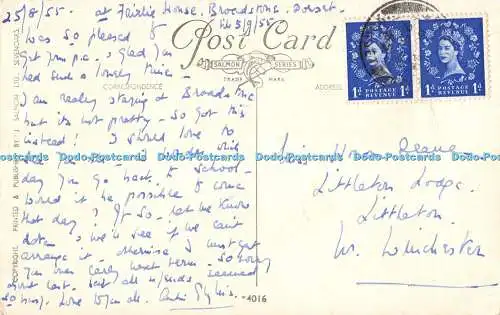 25/8/55. at Fairlie House, Broadstone, Dorset.
till 5/9/55
Post Card
SALMON SERIES
TRADE MARK
CORRESPONDENCE
ADDRESS
1D POSTAGE REVENUE 1D
1D POSTAGE REVENUE 1D
was so pleased to
get your p.c. & glad you
had such a lovely time.
I am really staying at Broadstone
but it's not pretty - so got this
instead! I should love to
day you go back to school -
would it be possible to come
that day? If so, let me know
date & we'll see if we can't
arrange it - otherwise I must get
you over early next term. So sorry
about last. Love
Miss Helen Deane
Littleton Lodge.
Littleton
Nr. Winchester
-4016
COPYRIGHT. PRINTED & PUBLISHED BY J. SALMON LTD., SEVENOAKS
Dodo-Postcards Dodo-Postcards Dodo-Postcards Dodo-Postcards Dodo-Postcards